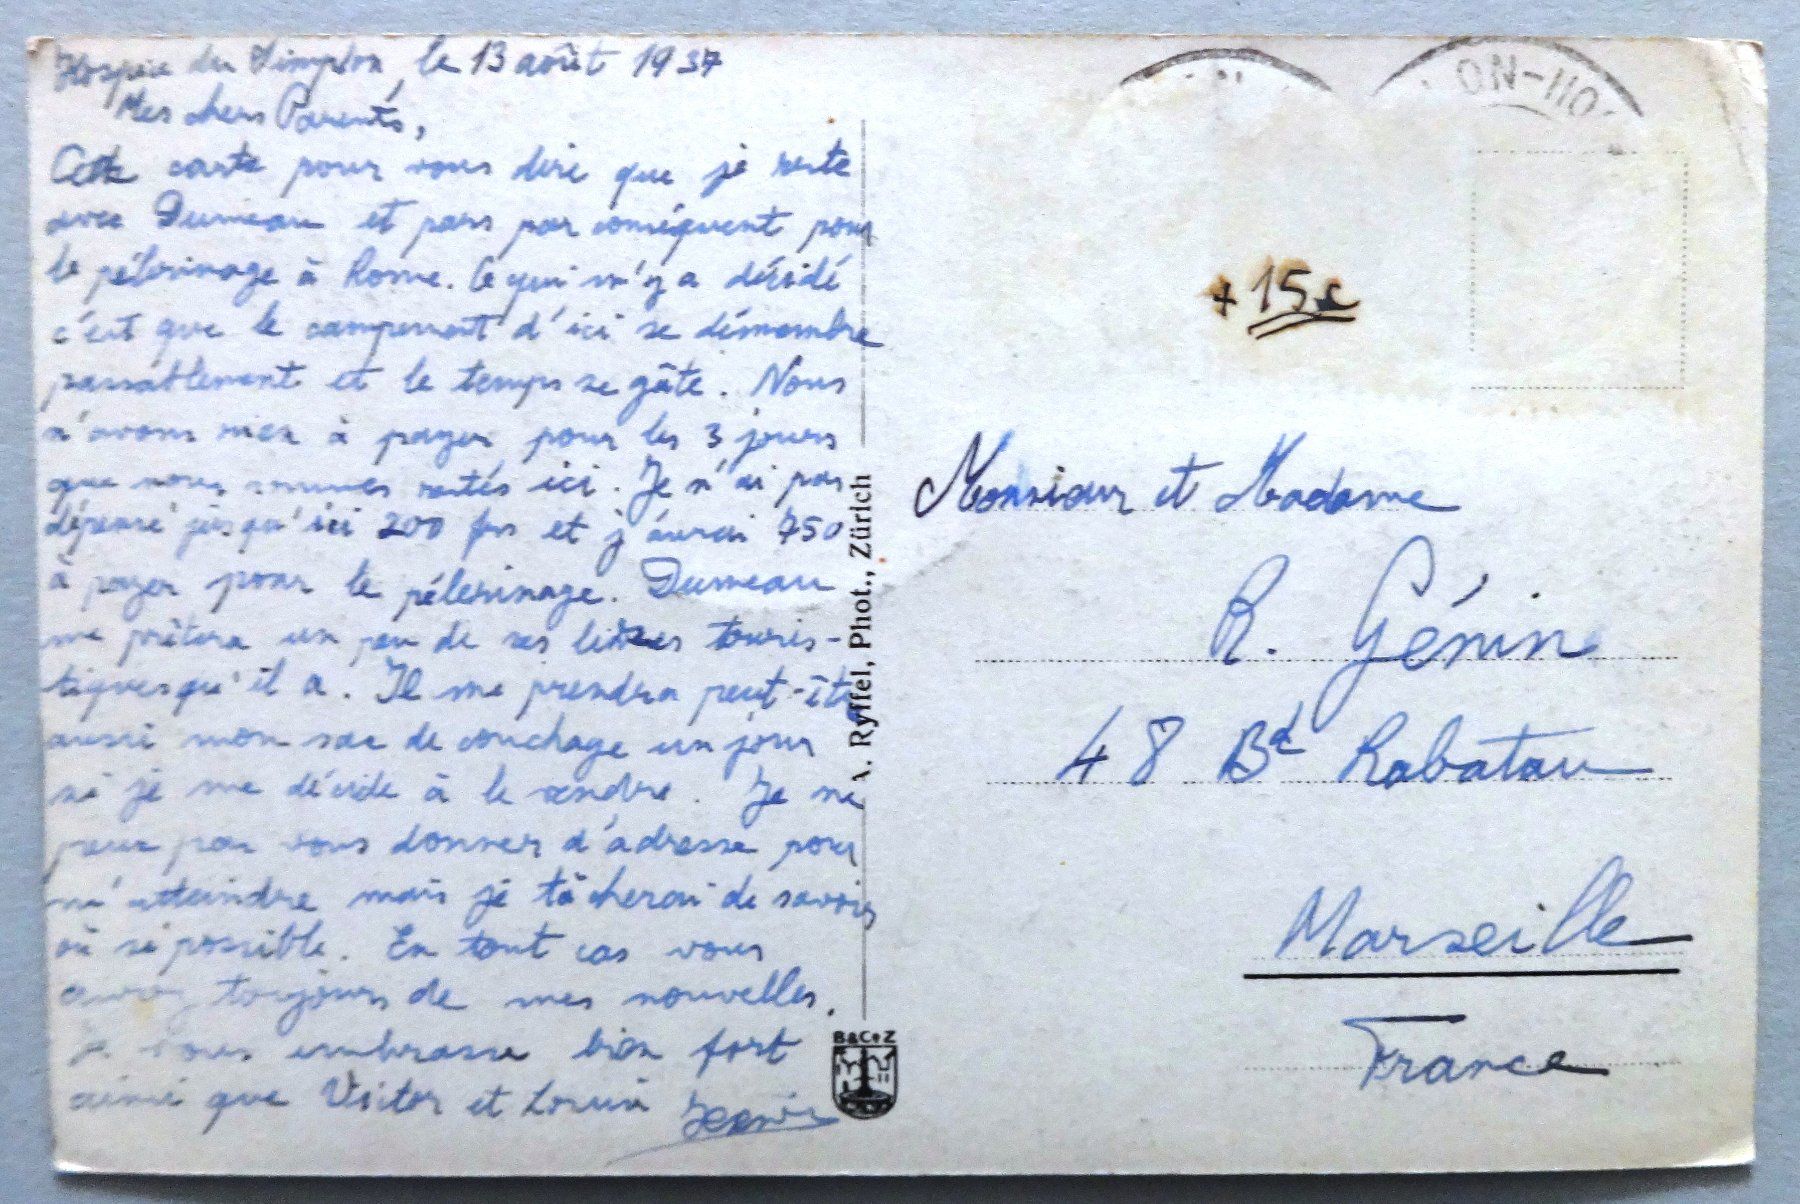 Hospice du Simplon, le 13 août 1937
Mes chers Parents,
Cette carte pour vous dire que je reste
avec Dumeau et pars par conséquent pour
le pélerinage à Rome. Ce qui m'y a décidé
c'est que le campement d'ici se démembre
passablement et le temps se gâte. Nous
n'avons rien à payer pour les 3 jours
que nous sommes restés ici. Je n'ai pas
dépensé jusqu'ici 200 frs et j'aurai 750
à payer pour le pélerinage. Dumeau
me prêtera un peu de ses lires touris-
tiques qu'il a. Il me prendra peut-être
aussi mon sac de couchage un jour
si je me décide à le vendre. Je ne
peux pas vous donner d'adresse pour
m'atteindre mais je tâcherai de savoir
où si possible. En tout cas vous
aurez toujours de mes nouvelles.
Je vous embrasse bien fort
ainsi que Victor et
A. Ryffel, Phot., Zürich
B&CoZ
+ 15c
Monsieur et Madame
R. Génin
48 Bd Rabatau
Marseille
France